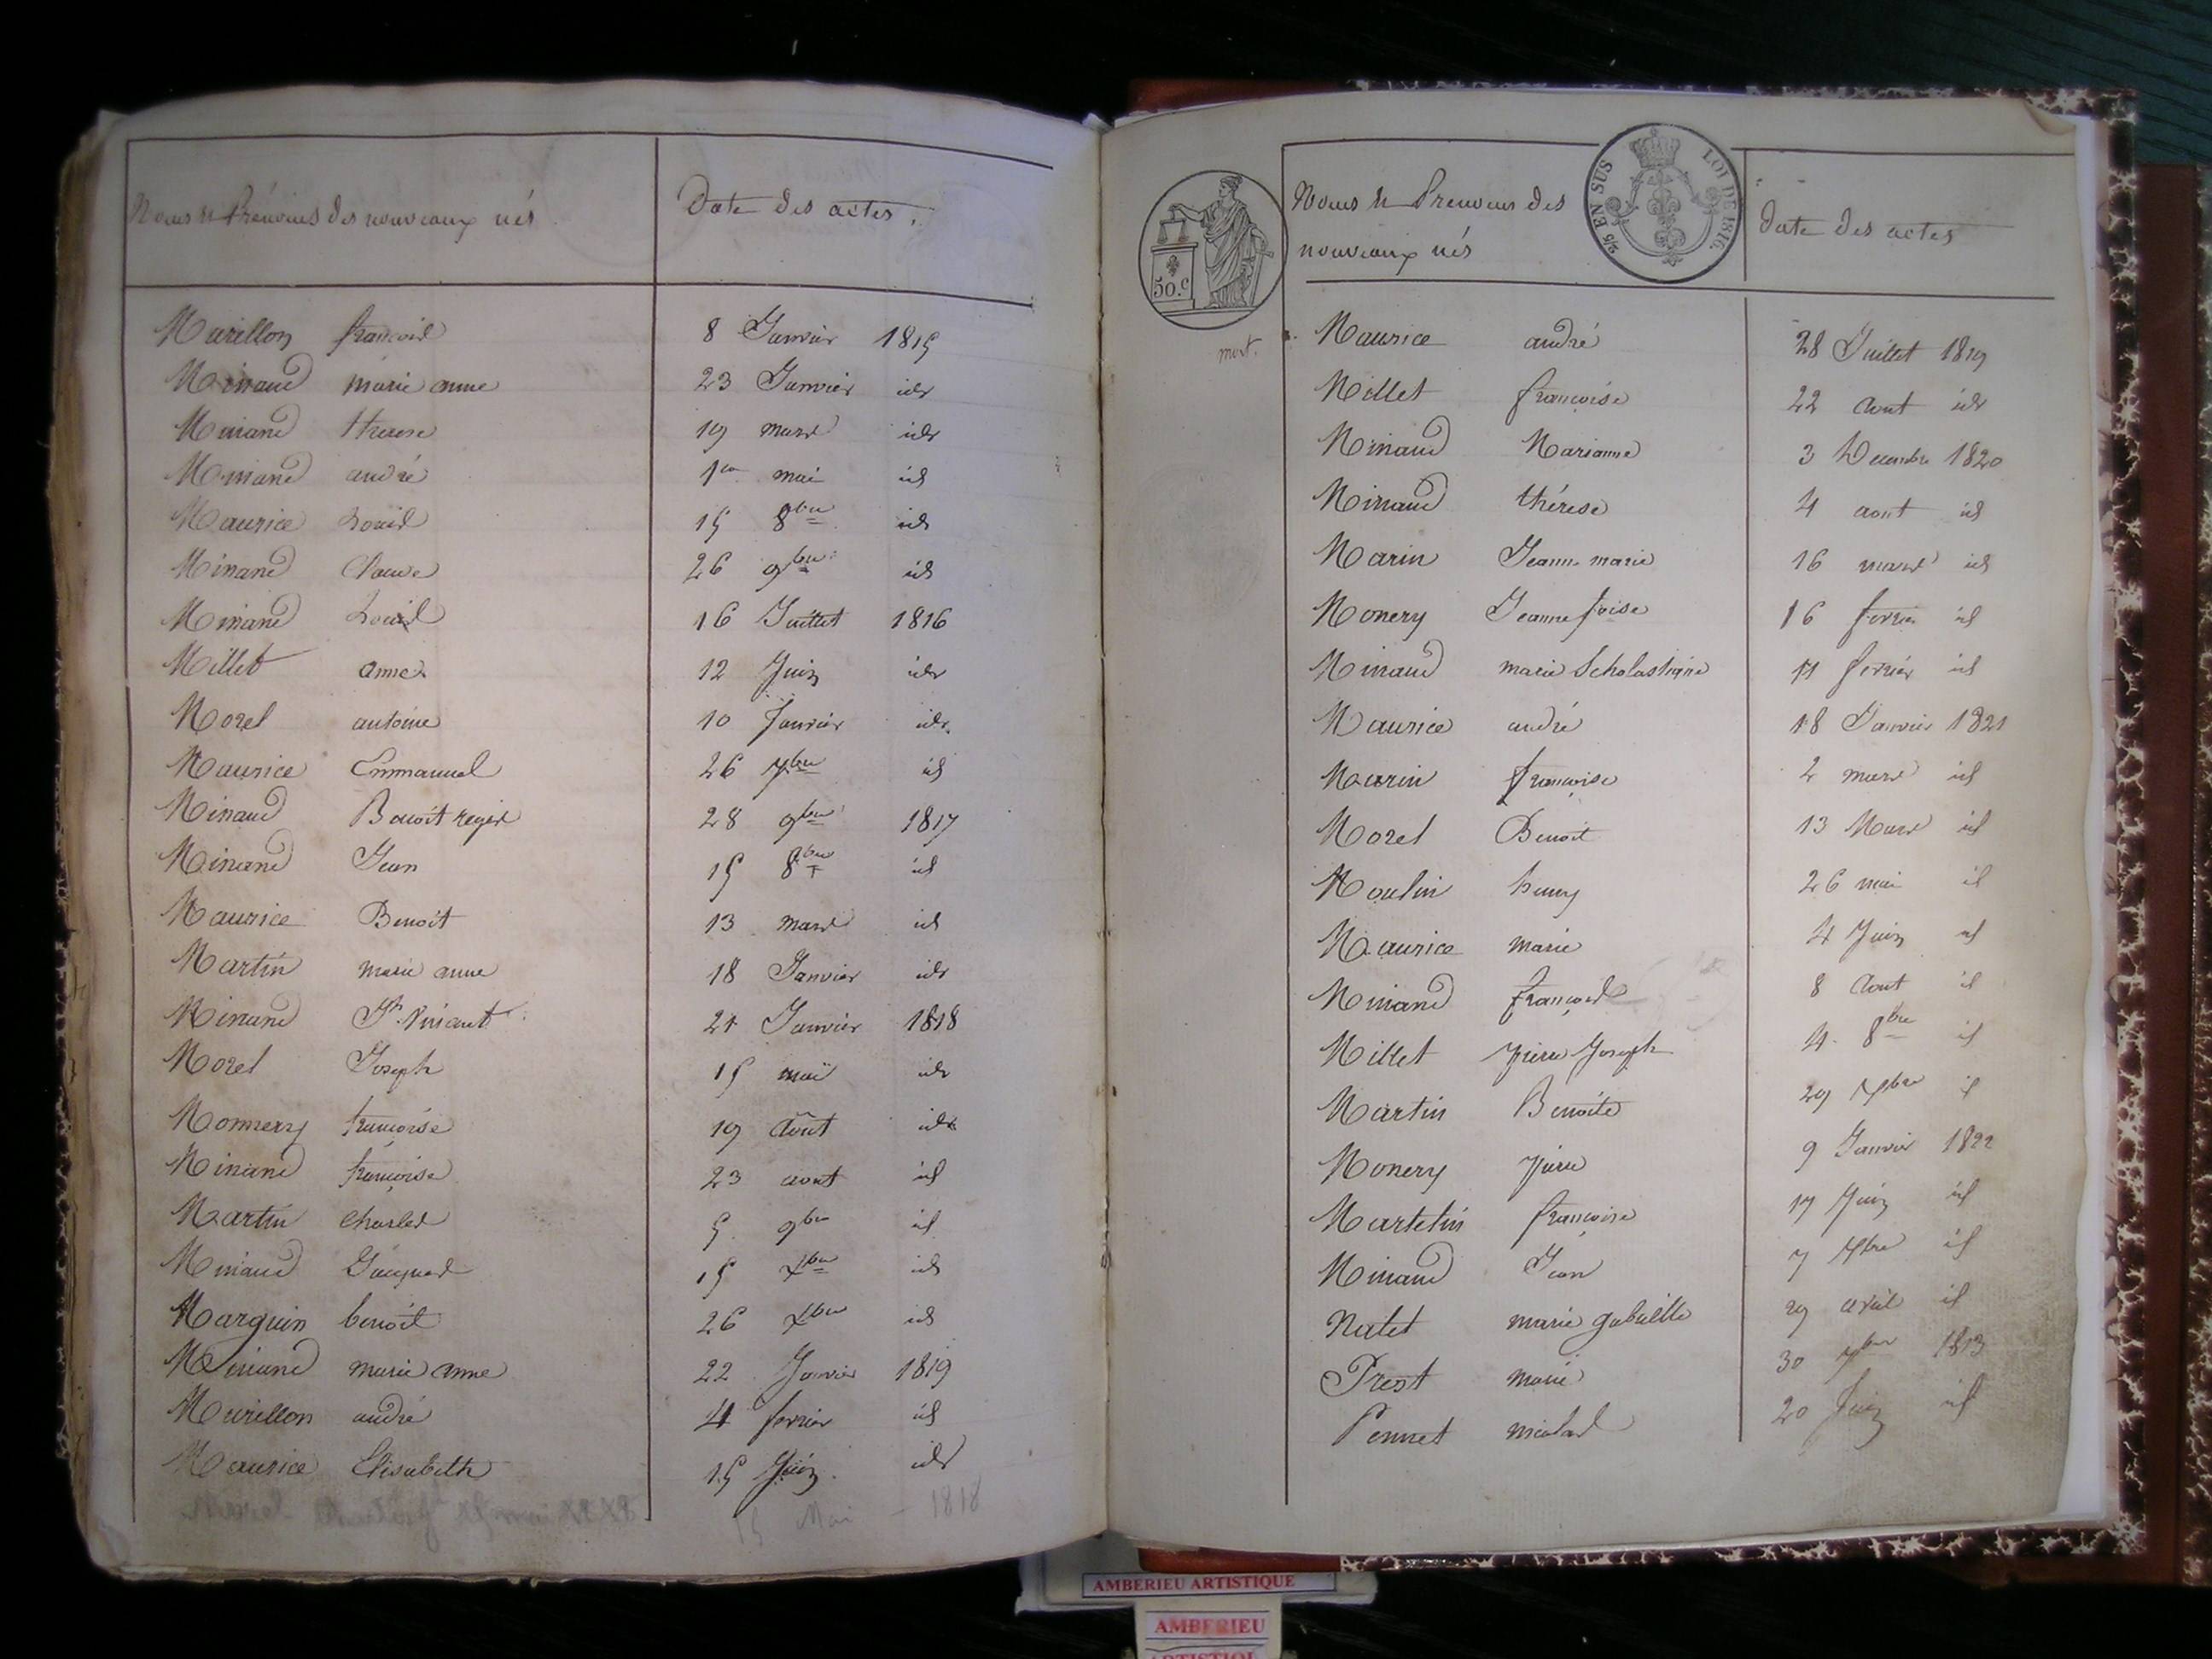 Noms et Prénoms des nouveaux nés
Date des actes.
Murillon françois 8 Janvier 1815
Minand marie anne 23 Janvier id
Minand therese 19 mars id
Minand andré 1er mai id
Maurice Louis 15 8bre id
Minand Claude 26 9bre id
Minand Louis 16 Juillet 1816
Millet anne 12 Juin id
Morel antoine 10 Janvier id
Maurice Emmanuel 26 7bre id
Minand Benoit regis 28 9bre 1817
Minand Jean 15 8bre id
Maurice Benoit 13 mars id
Martin marie anne 18 Janvier id
Minand Jh. Vincent 21 Janvier 1818
Morel Joseph 15 mai id
Monnery françoise 19 Août id
Minand françoise 23 aout id
Martin charles 5 9bre id
Minand Jacques 15 Xbre id
Marguin benoit 26 Xbre id
Minand marie anne 22 Janvier 1819
Murillon andré 4 fevrier id
Maurice Elisabeth 15 Juin id
15 Mai - 1818
50.c
EN SUS
LOI DE 1816.
Noms et Prenoms des
nouveaux nés
Date des actes
mort.
Maurice andré 28 Juillet 1819
Millet françoise 22 Aout id
Minand Marianne 3 Decembre 1820
Minand thérese 4 aout id
Marin Jeanne marie 16 mars id
Monery Jeanne foise 16 fevrier id
Minand marie Scholastique 17 fevrier id
Maurice andré 18 Janvier 1821
Marin françoise 2 mars id
Morel Benoit 13 Mars id
Moulin 26 mai id
Maurice marie 4 Juin id
Minand françois 8 Aout id
Millet pierre Joseph 4 8bre id
Martin Benoite 29 Xbre id
Monery pierre 9 Janvier 1822
Martelin françoise 17 Juin id
Minand Jean 7 7bre id
marie gabrielle 29 avril id
Prost marie 30 7bre 1813
Pennet nicolas 20 Juin id
AMBERIEU ARTISTIQUE
AMBERIEU
ARTISTIQUE